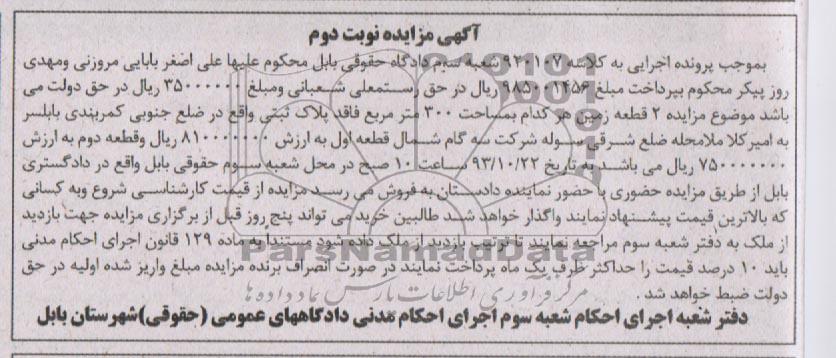 آگهی مزایده نوبت دوم
بموجب پرونده اجرایی به کلاسه ۹۲۰۱۰۷ شعبه سوم دادگاه حقوقی بابل محکوم علیها علی اصغر بابایی مروزنی ومهدی
روز پیکر محکوم بپرداخت مبلغ ۹۸۵۰۰۱۴۵۶ ریال در حق رستمعلی شعبانی ومبلغ ۳۵۰۰۰۰۰۰ ریال در حق دولت می
باشد موضوع مزایده ۲ قطعه زمین هر کدام بمساحت ۳۰۰ متر مربع فاقد پلاک ثبتی واقع در ضلع جنوبی کمربندی بابلسر
به امیرکلا ملامحله ضلع شرقی سوله شرکت سه گام شمال قطعه اول به ارزش ۸۱۰۰۰۰۰۰۰ ریال وقطعه دوم به ارزش
۷۵۰۰۰۰۰۰۰ ریال می باشد به تاریخ ۹۳/۱۰/۲۲ ساعت ۱۰ صبح در محل شعبه سوم حقوقی بابل واقع در دادگستری
بابل از طریق مزایده حضوری با حضور نماینده دادستان به فروش می رسد مزایده از قیمت کارشناسی شروع وبه کسانی
که بالاترین قیمت پیشنهاد نمایند واگذار خواهد شد طالبین خرید می تواند پنج روز قبل از برگزاری مزایده جهت بازدید
از ملک به دفتر شعبه سوم مراجعه نمایند تا ترتیب بازدید از ملک داده شود مستنداً به ماده ۱۲۹ قانون اجرای احکام مدنی
باید ۱۰ درصد قیمت را حداکثر ظرف یک ماه پرداخت نمایند در صورت انصراف برنده مزایده مبلغ واریز شده اولیه در حق
دولت ضبط خواهد شد .
دفتر شعبه اجرای احکام شعبه سوم اجرای احکام مدنی دادگاههای عمومی (حقوقی)شهرستان بابل
ParsNamadData
مرکز فرآوری اطلاعات پارس نماد داده ها